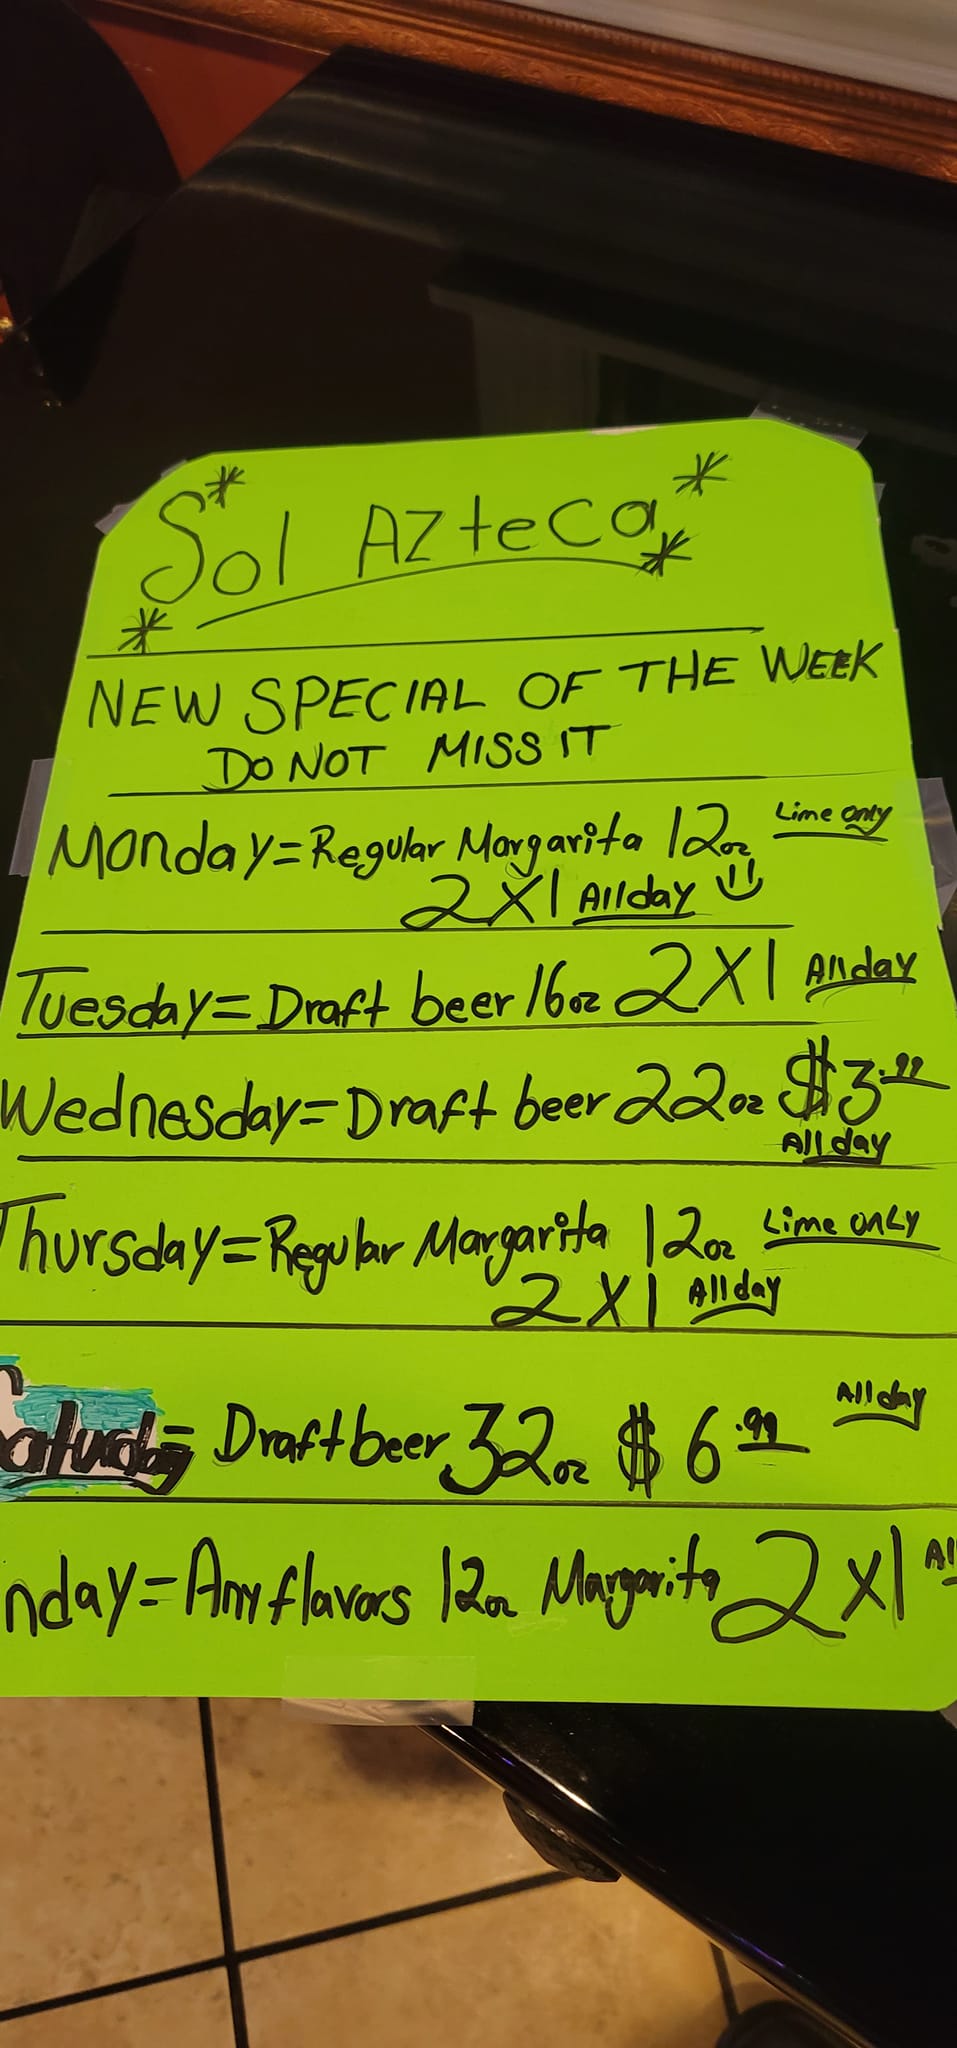 Sol Azteca
NEW SPECIAL OF THE WEEK
DO NOT MISS IT
Monday = Regular Margarita 12oz Lime only
2X1 All day
Tuesday = Draft beer 16oz 2X1 All day
Wednesday = Draft beer 22oz $3.99
All day
Thursday = Regular Margarita 12oz Lime only
2X1 All day
Saturday = Draft beer 32oz $6.99 All day
nday = Any flavors 12oz Margarita 2X1 Al